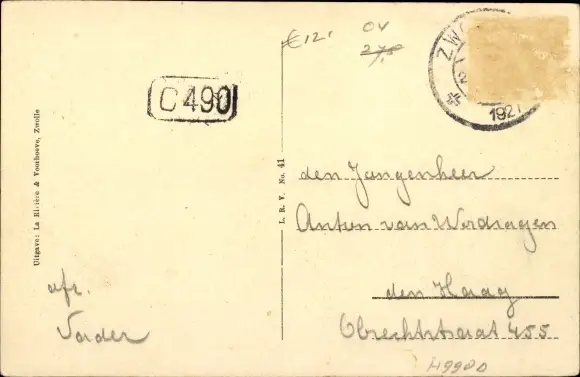 € 12,-
04
27,5
ZWO
1927
C 490
Uitgave: La Rivière & Voorhoeve, Zwolle
L. R. V. No. 41
den Jongenheer
Anton van Werdragen
den Haag
Obrechtstraat 455
afz.
Vader
H9900